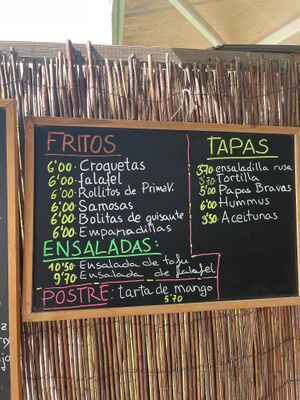 FRITOS
6'00· Croquetas
6'00· falafel
6'00· Rollitos de PrimaV.
6'00· Samosas
6'00· Bolitas de guisante
6'00· Empanadillas
ENSALADAS:
10'50· Ensalada de tofu
9'70 Ensalada de falafel
POSTRE: tarta de mango
5'70
TAPAS
3'70· ensaladilla rusa
Tortilla
5'00 Papas Bravas
6'00· Hummus
3'50· Aceitunas